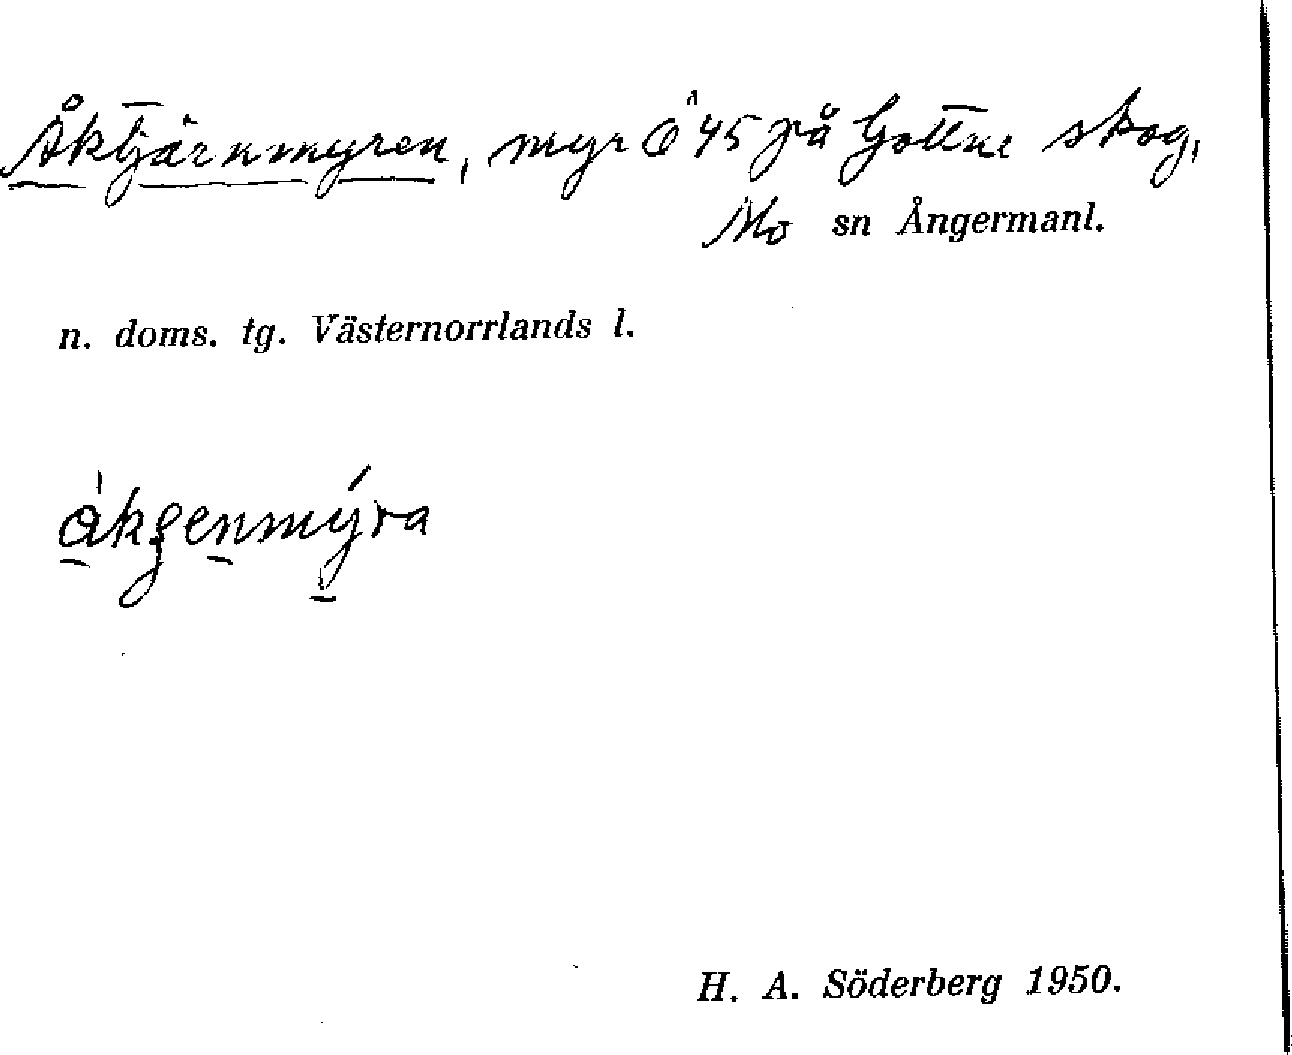 Åktjärnmyren, myr Ö 45 på Gottne skog,
Mo sn Ångermanl.
n. doms. tg. Västernorrlands l.
H. A. Söderberg 1950.